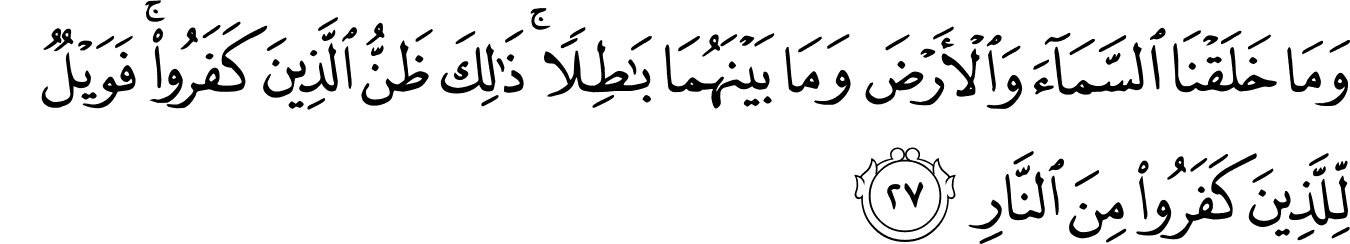 وَمَا خَلَقْنَا ٱلسَّمَآءَ وَٱلْأَرْضَ وَمَا بَيْنَهُمَا بَـٰطِلًا ۚ ذَٰلِكَ ظَنُّ ٱلَّذِينَ كَفَرُوا۟ ۚ فَوَيْلٌ
لِّلَّذِينَ كَفَرُوا۟ مِنَ ٱلنَّارِ ٢٧